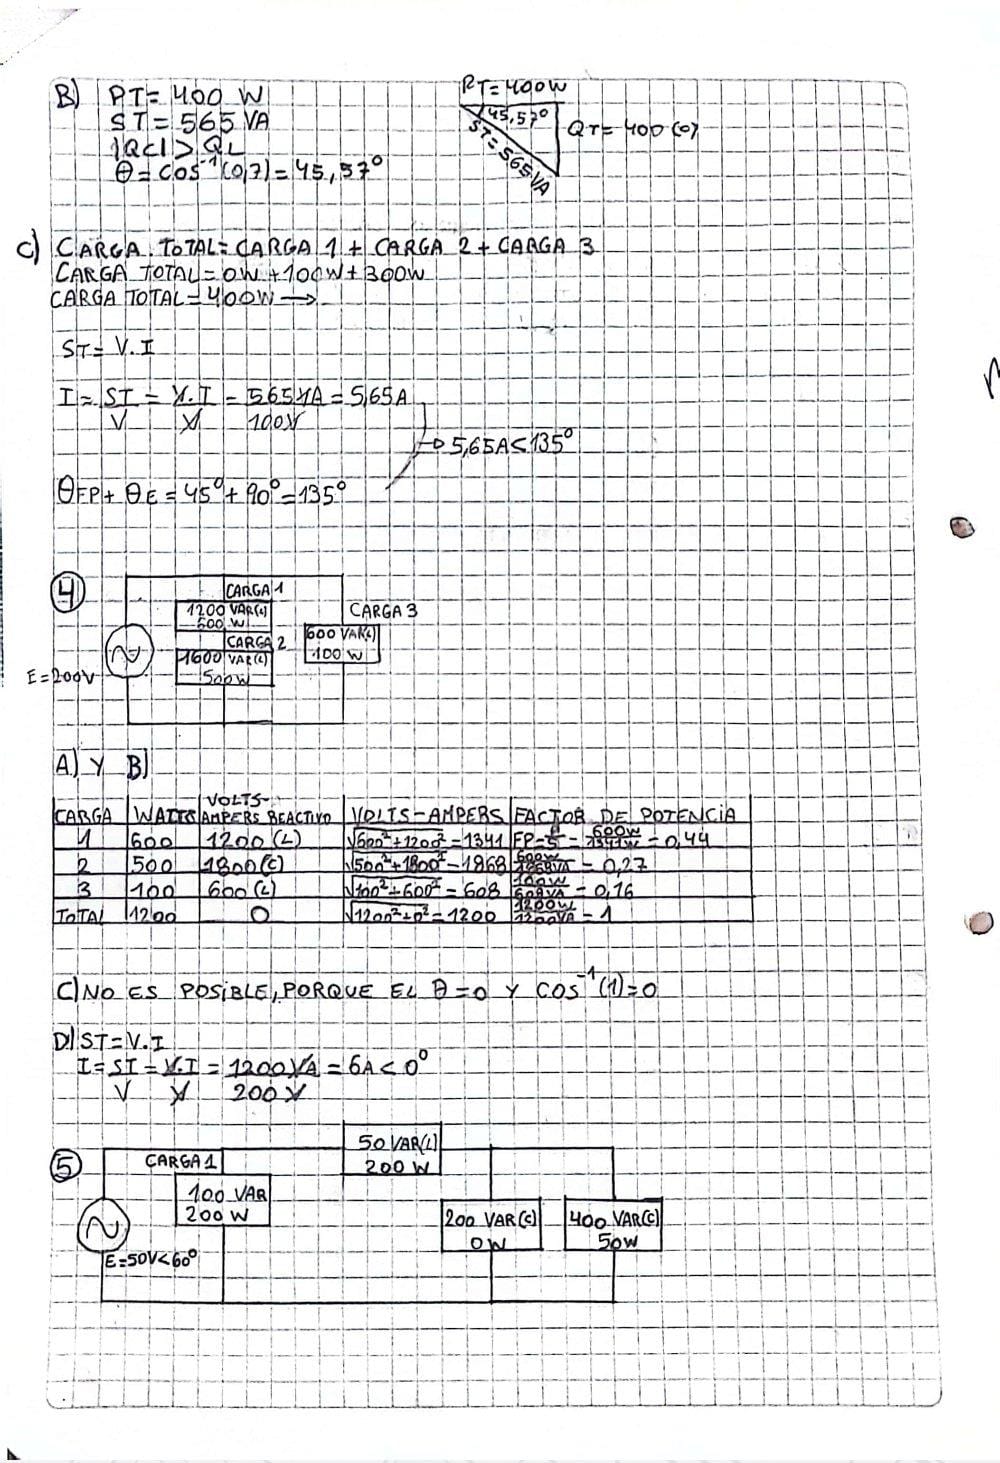 B) PT= 400 W
ST= 565 VA
|QC| > QL
θ= COS⁻¹(0,7)= 45,57°
PT= 400W
45,57°
QT= 400 (C)
ST= 565 VA
C) CARGA TOTAL= CARGA 1 + CARGA 2 + CARGA 3
CARGA TOTAL= 0W +100W+300W
CARGA TOTAL= 400W →
ST= V.I
I = ST/V = V.I/V = 565VA/100V = 5,65A
→ 5,65A<135°
θFP+ θE = 45°+ 90°= 135°
4
CARGA 1
1200 VAR(L)
500 W
CARGA 2
1600 VAR(C)
500W
CARGA 3
600 VAR(L)
100 W
E=200V
A) Y B)
CARGA WATTS VOLTS-AMPERS REACTIVO VOLTS-AMPERS FACTOR DE POTENCIA
1 600 1200 (L) √600²+1200² = 1341 FP= P/S = 600W/1341W = 0,44
2 500 1800(C) √500²+1800² = 1868 = 0,27
3 100 600 (L) √100²+600² = 608 100W/608VA = 0,16
TOTAL 1200 0 √1200²+0² = 1200 1200W/1200VA = 1
C) NO ES POSIBLE, PORQUE EL θ=0 Y COS⁻¹(1)=0
D) ST=V.I
I = ST/V = V.I/V = 1200VA/200V = 6A<0°
5
CARGA 1
100 VAR
200 W
50 VAR(L)
200 W
200 VAR(C)
0W
400 VAR(C)
50W
E=50V<60°